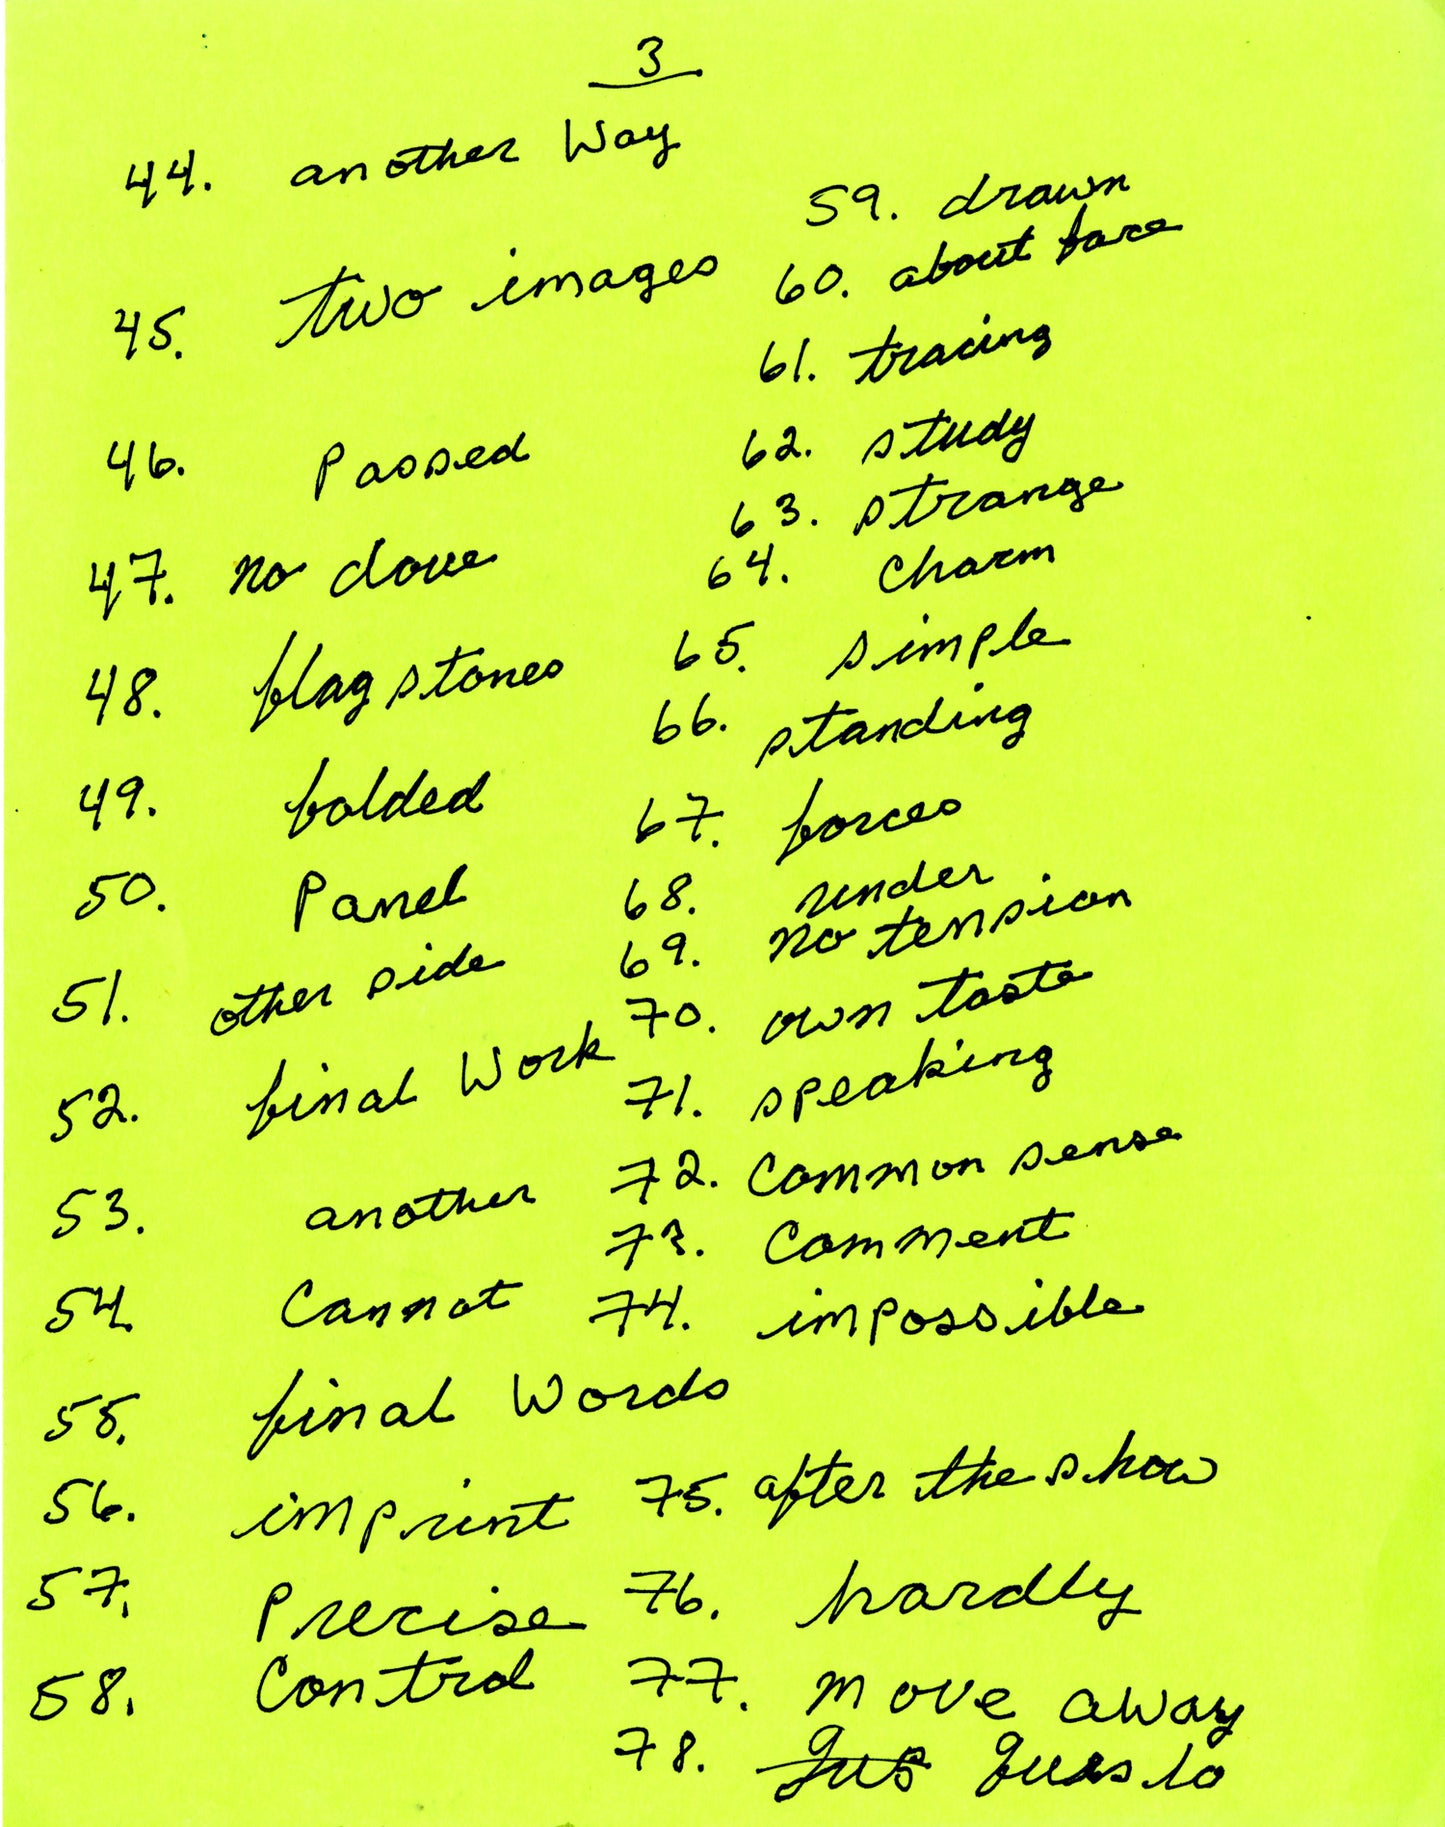 3
44. another Way
45. two images
46. Passed
47. no dove
48. flagstones
49. folded
50. Panel
51. other side
52. final Work
53. another
54. Cannot
55. final Words
56. imprint
57. Precise
58. Control
59. drawn
60. about face
61. tracing
62. study
63. strange
64. Charm
65. simple
66. standing
67. forces
68. under
69. no tension
70. own taste
71. speaking
72. Common sense
73. Comment
74. impossible
75. after the show
76. hardly
77. move away
78.